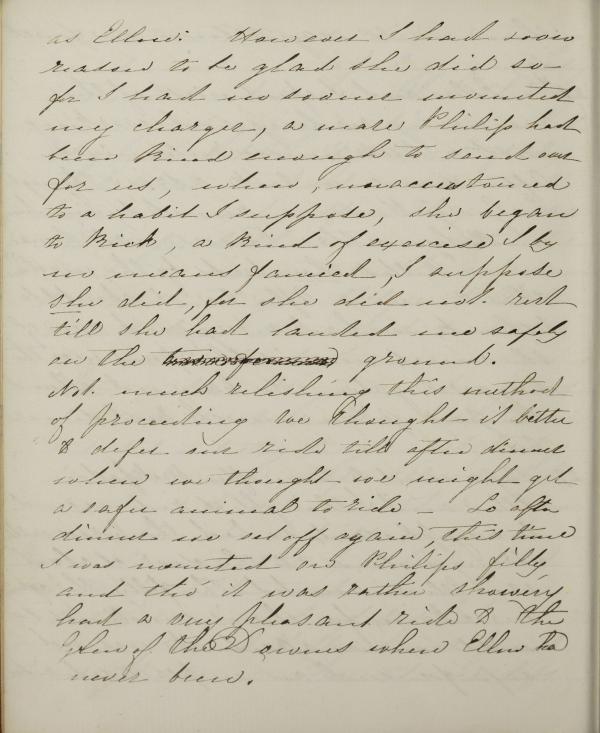 as Ellen. However I had soon
reason to be glad she did so
for I had no sooner mounted
my charger, a mare Philip had
been kind enough to send out
for us, when, unaccustomed
to a habit I suppose, she began
to kick, a kind of exercise I by
no means fancied, I suppose
she did, for she did not rest
till she had landed me safely
on the ground.
Not much relishing this method
of proceeding we thought it better
to defer our ride till after dinner
when we thought we might get
a safer animal to ride – So after
dinner we set off again, this time
I was mounted on Philips filly
and tho' it was rather showery
had a very pleasant ride to the
Glen of the Downs where Ellen had
never been.